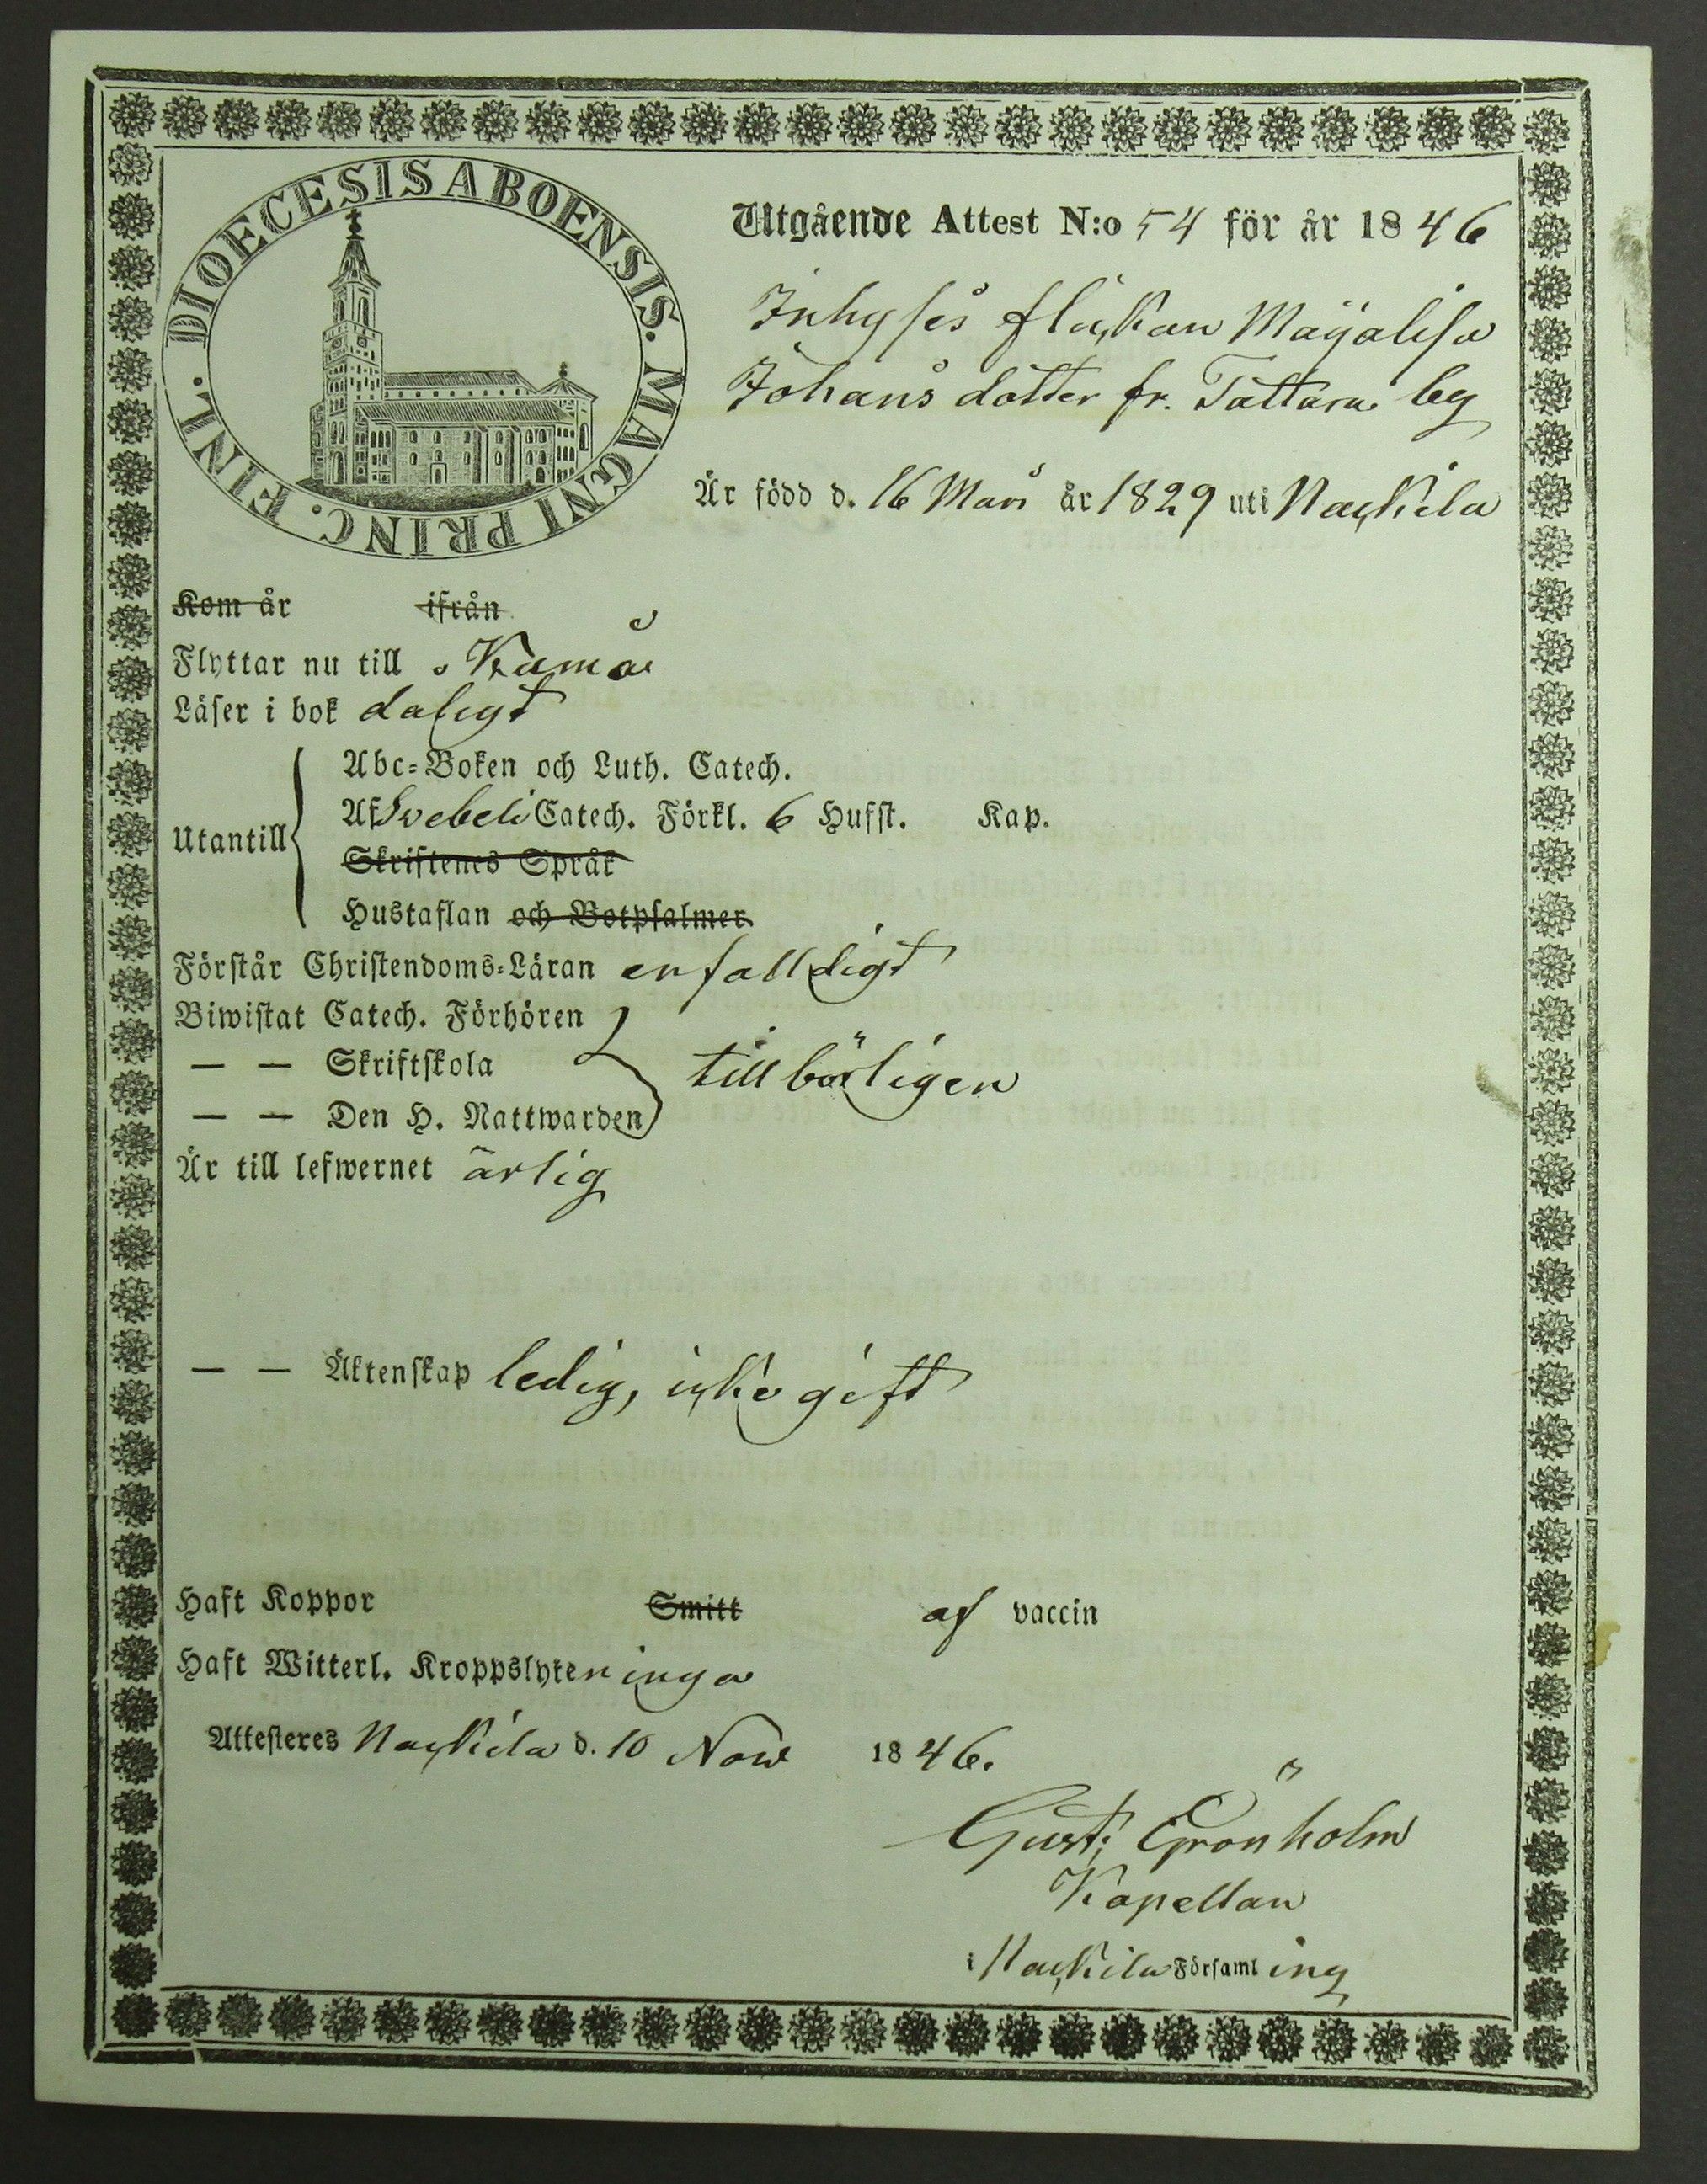 DIOECESIS ABOENSIS. MAGNI PRINC. FINL.
Utgående Attest N:o 54 för år 1846
Inhyses flickan Majalisa
Johans dotter fr. Tattara by
Är född d. 16 Mars år 1829 uti Nackila
Kom år ifrån
Flyttar nu till Kumå
Läser i bok daligt
Utantill
Abc-Boken och Luth. Catech.
Af Svebeli Catech. Förkl. 6 Hufst. Kap.
Skriftenes Språk
Hustaflan och Botpsalmer
Förstår Christendoms-Läran enfalldigt
Biwistat Catech. Förhören
— — Skriftskola tillbörligen
— — Den H. Nattwarden
Är till lefwernet ärlig
— — Äktenskap ledig, icke gift
Haft Koppor Smitt af vaccin
Haft Witterl. Kroppslyten inga
Attesteres Nackila d. 10 Now 1846.
Gust: Grönholm
Kapellan
i Nackila Församling